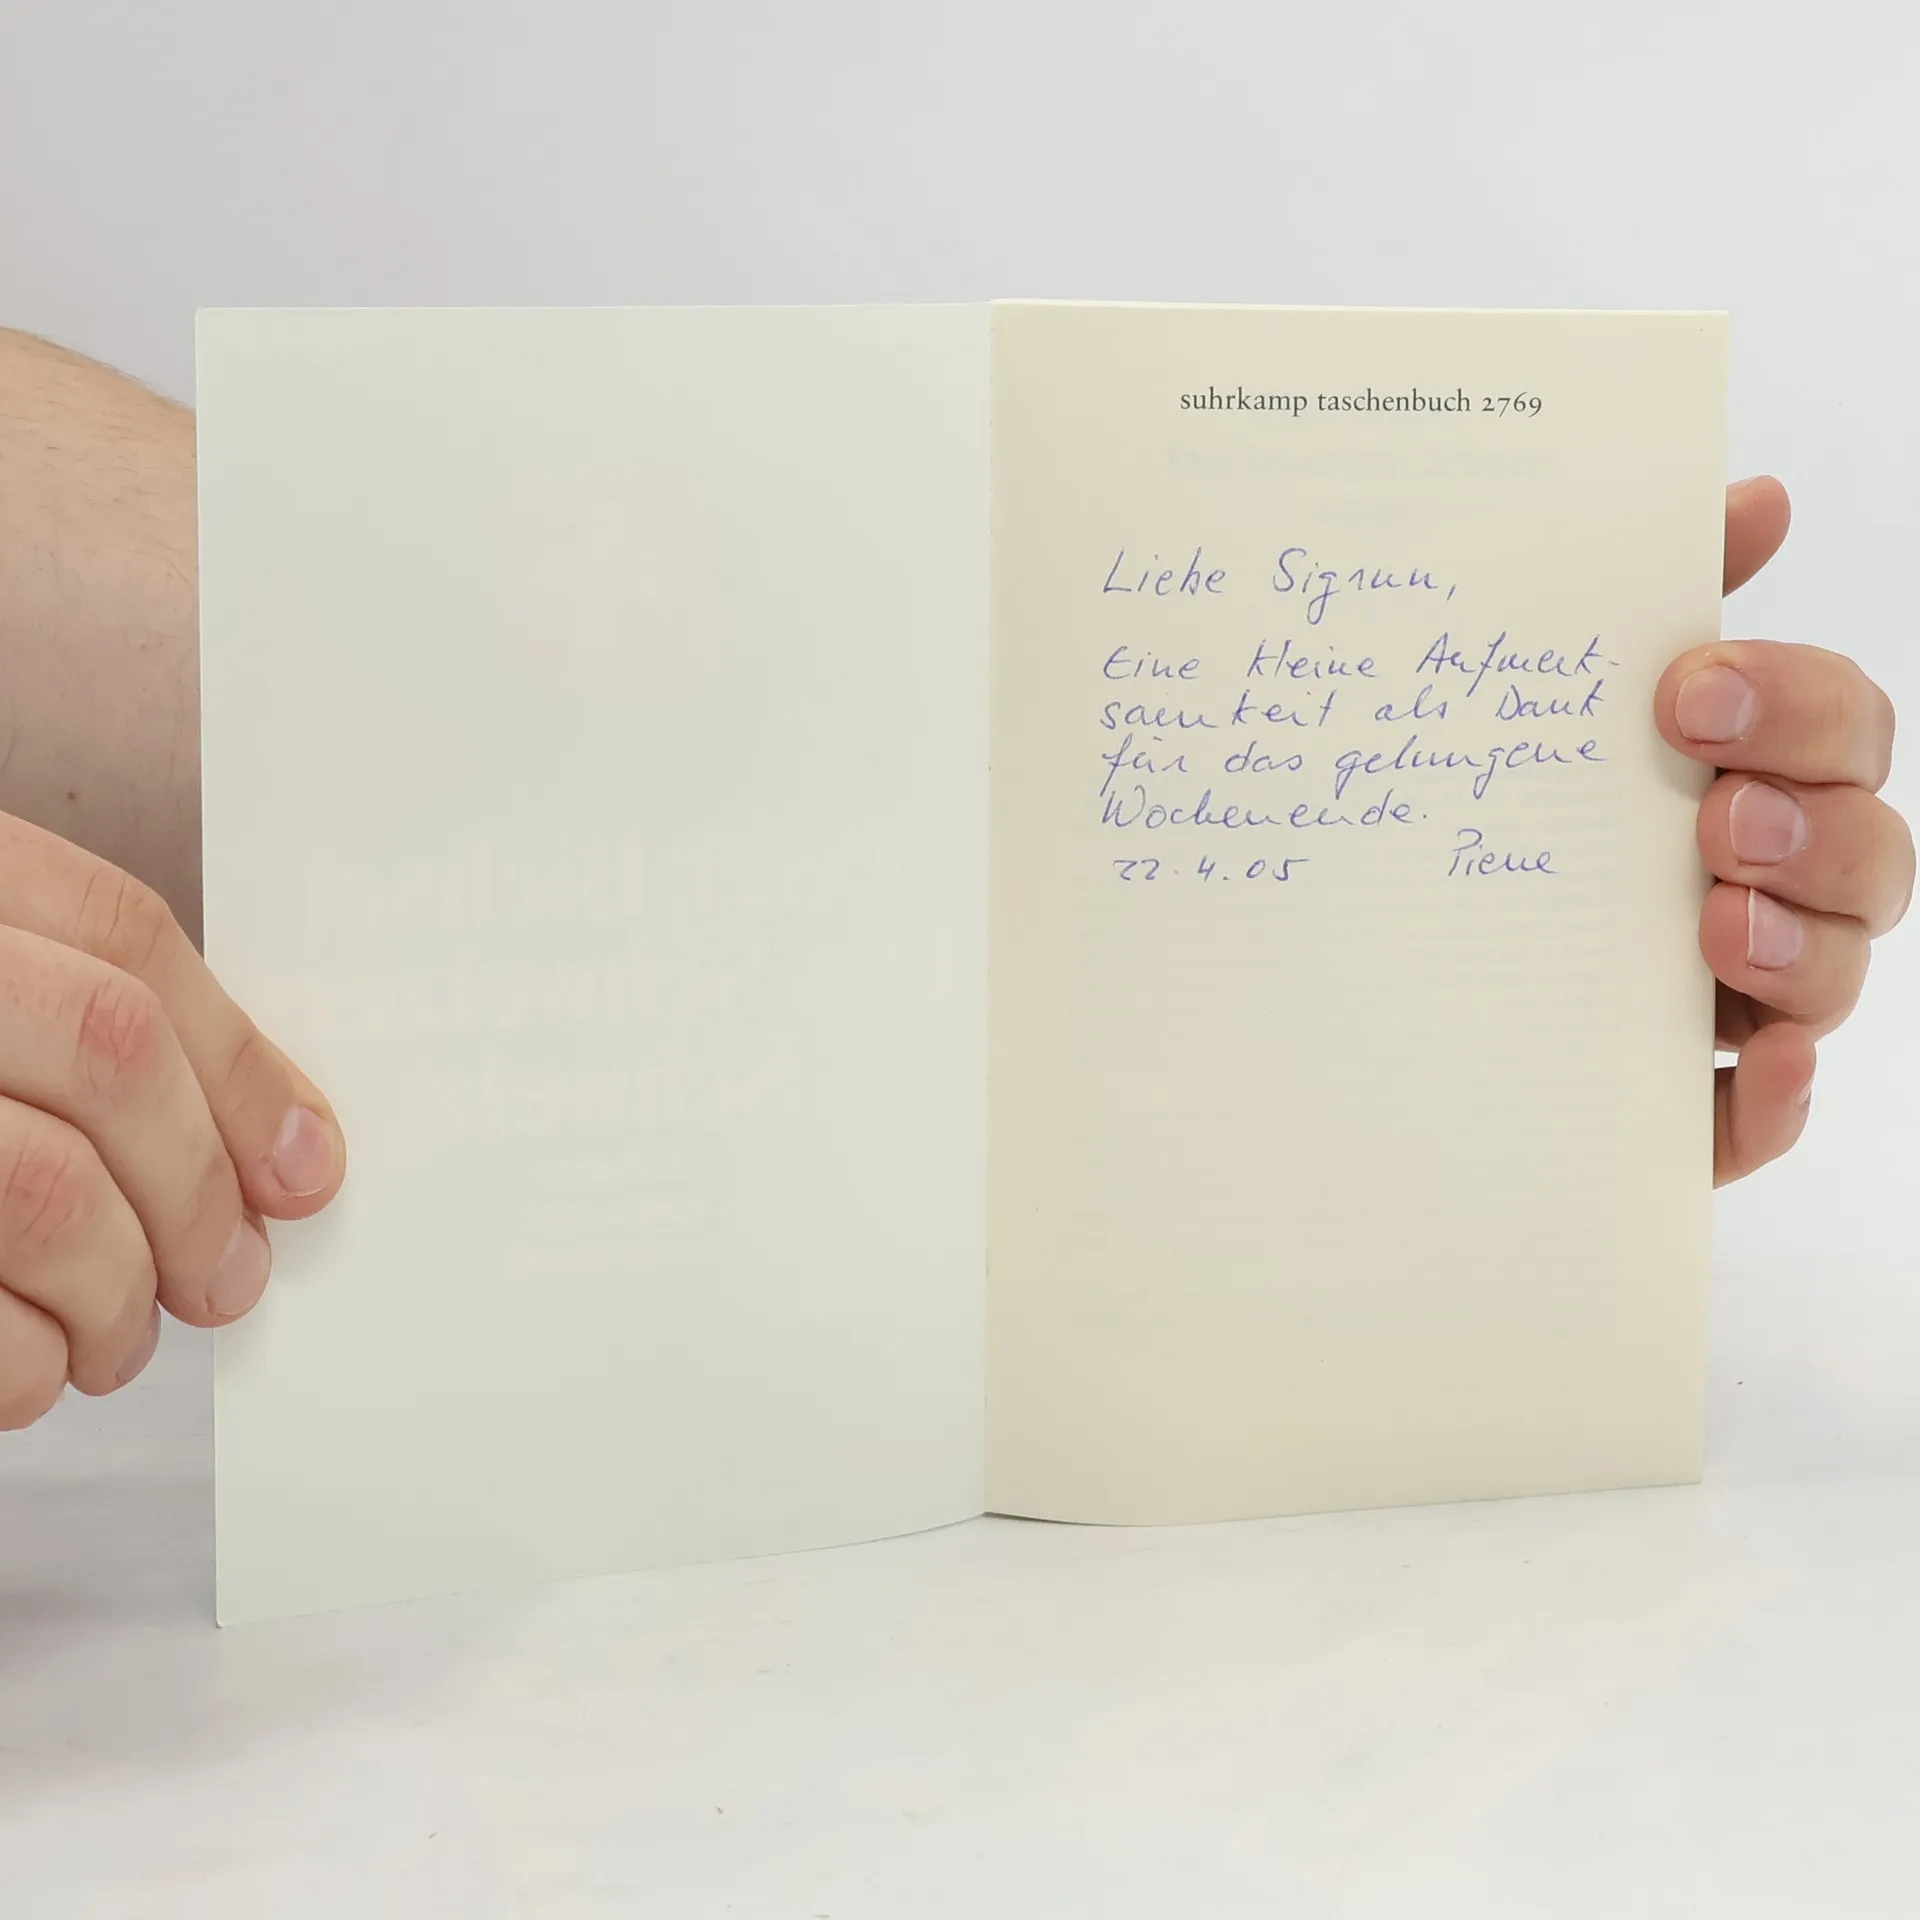 suhrkamp taschenbuch 2769
Liebe Sigrun,
Eine kleine Aufmerk-
samkeit als Dank
für das gelungene
Wochenende.
22.4.05 Piene